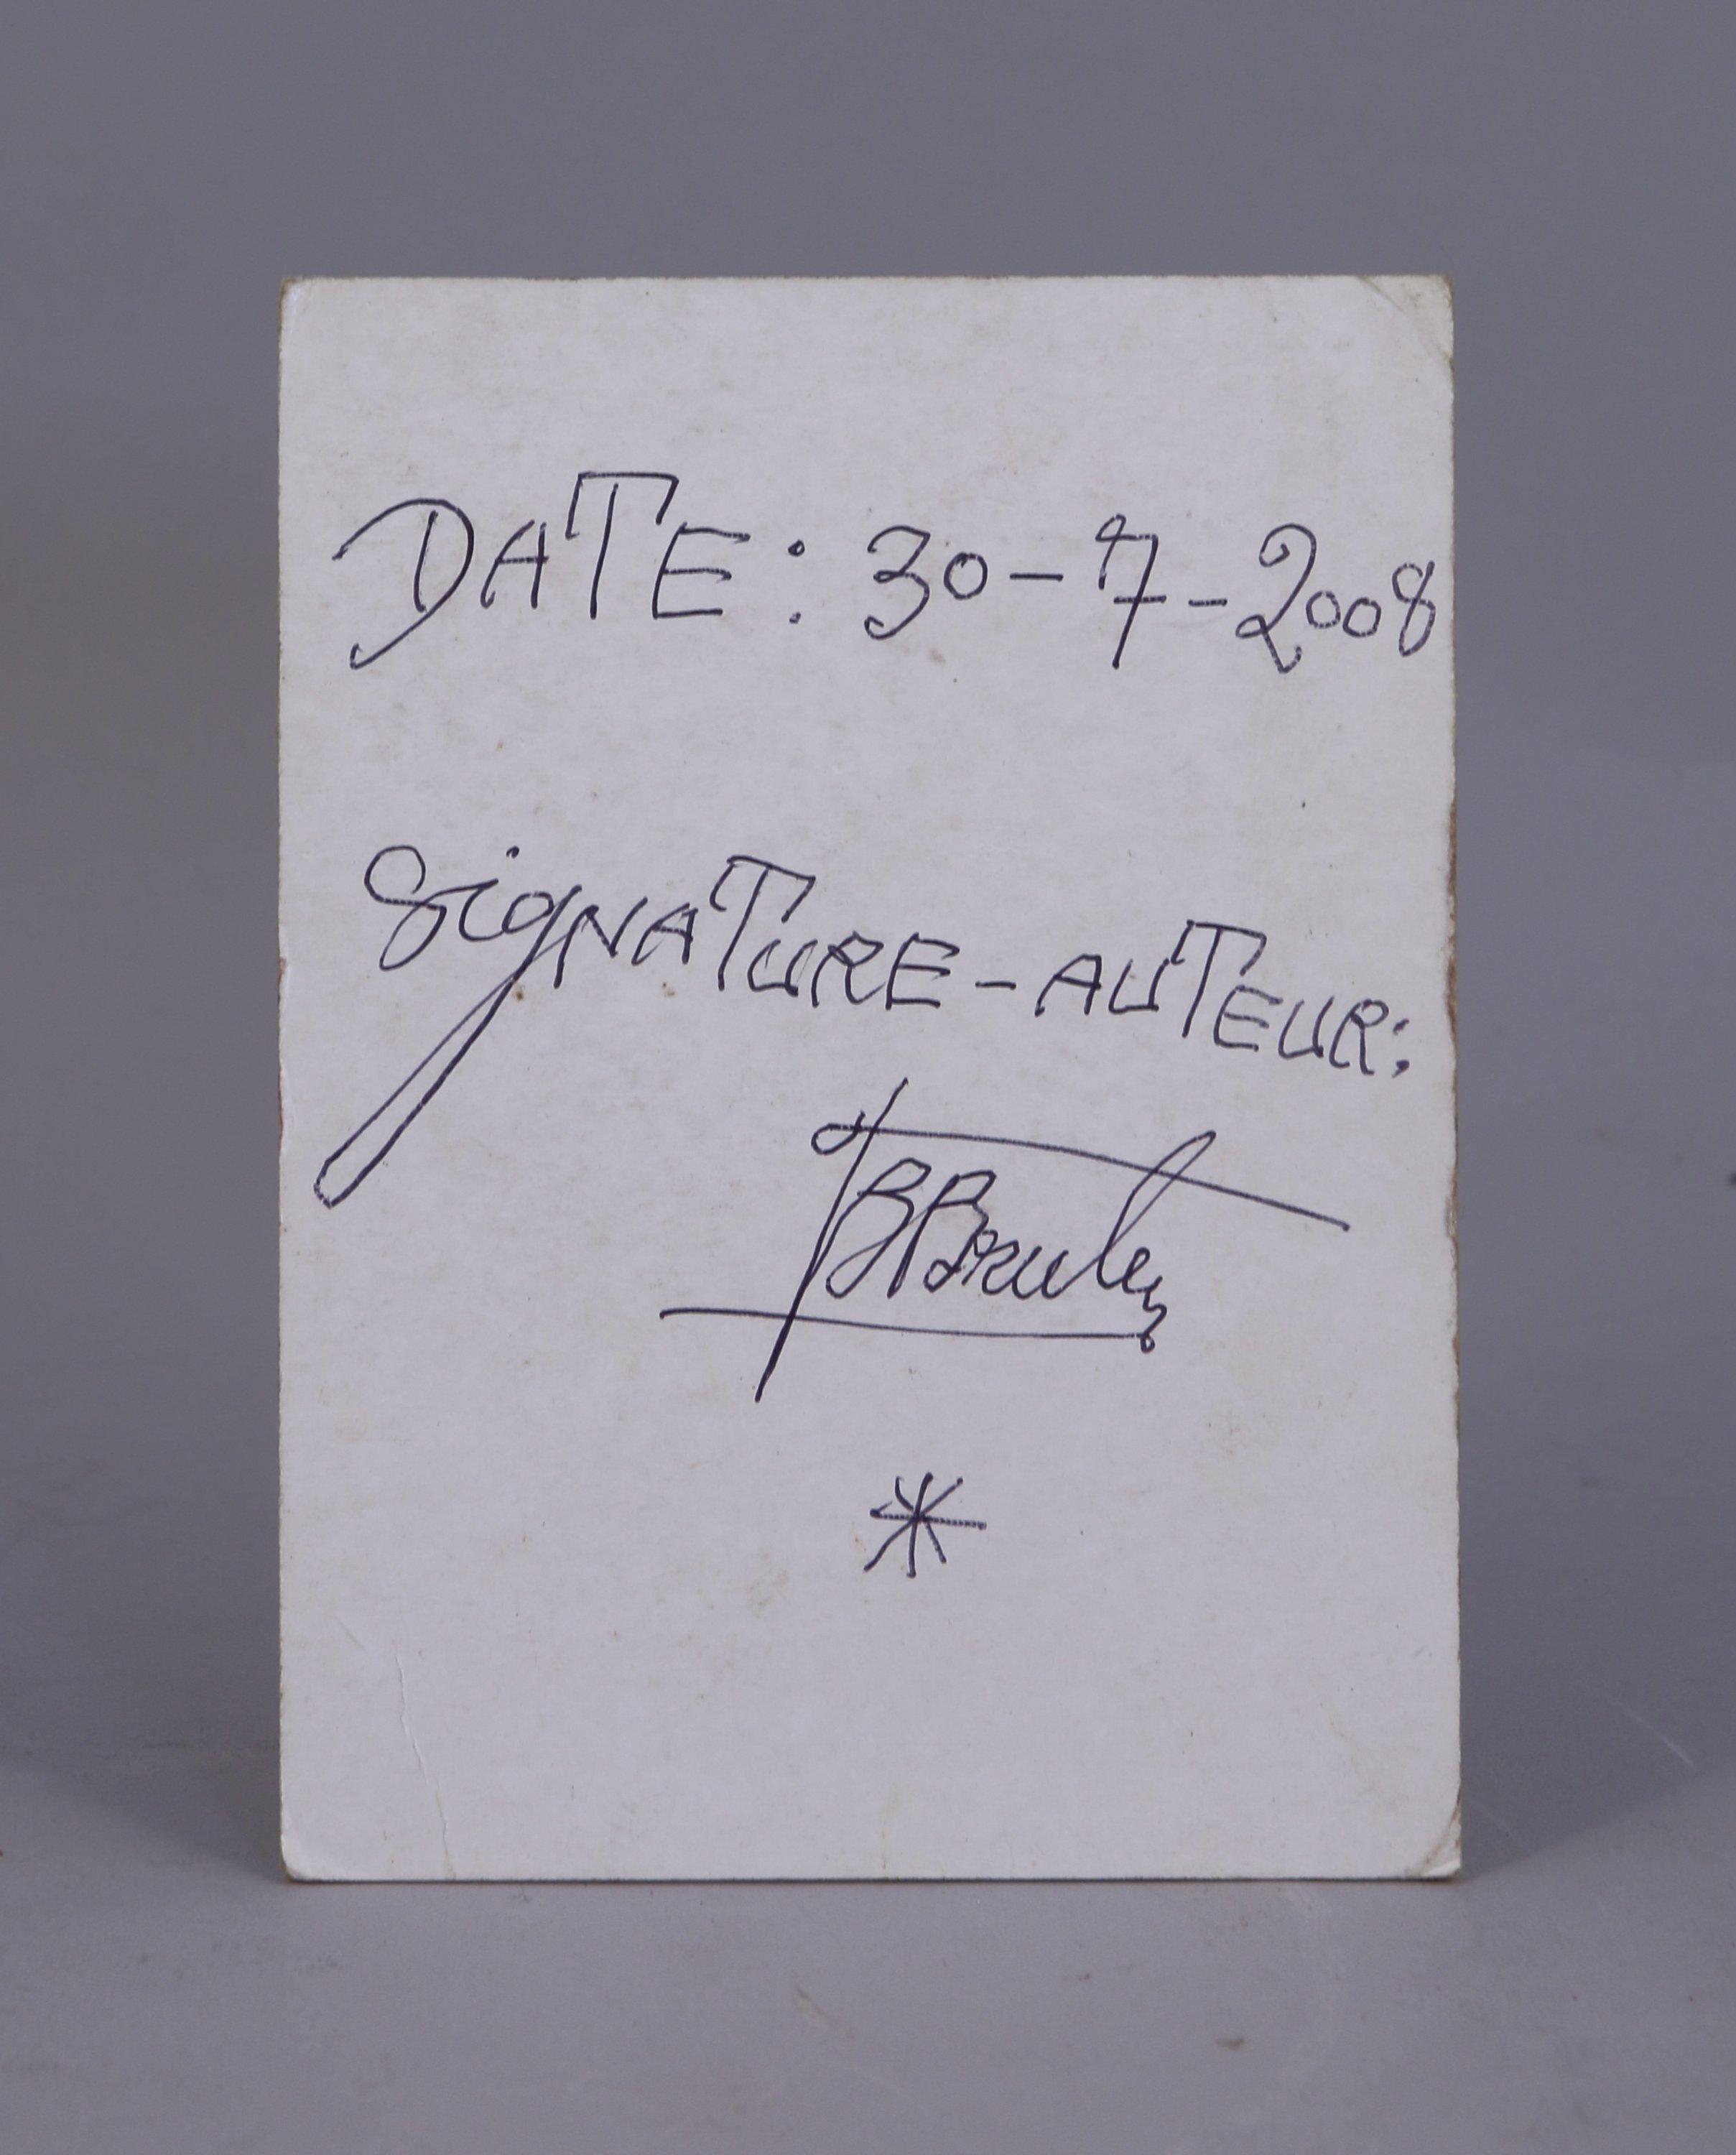 DATE: 30-7-2008
SIGNATURE-AUTEUR:
*